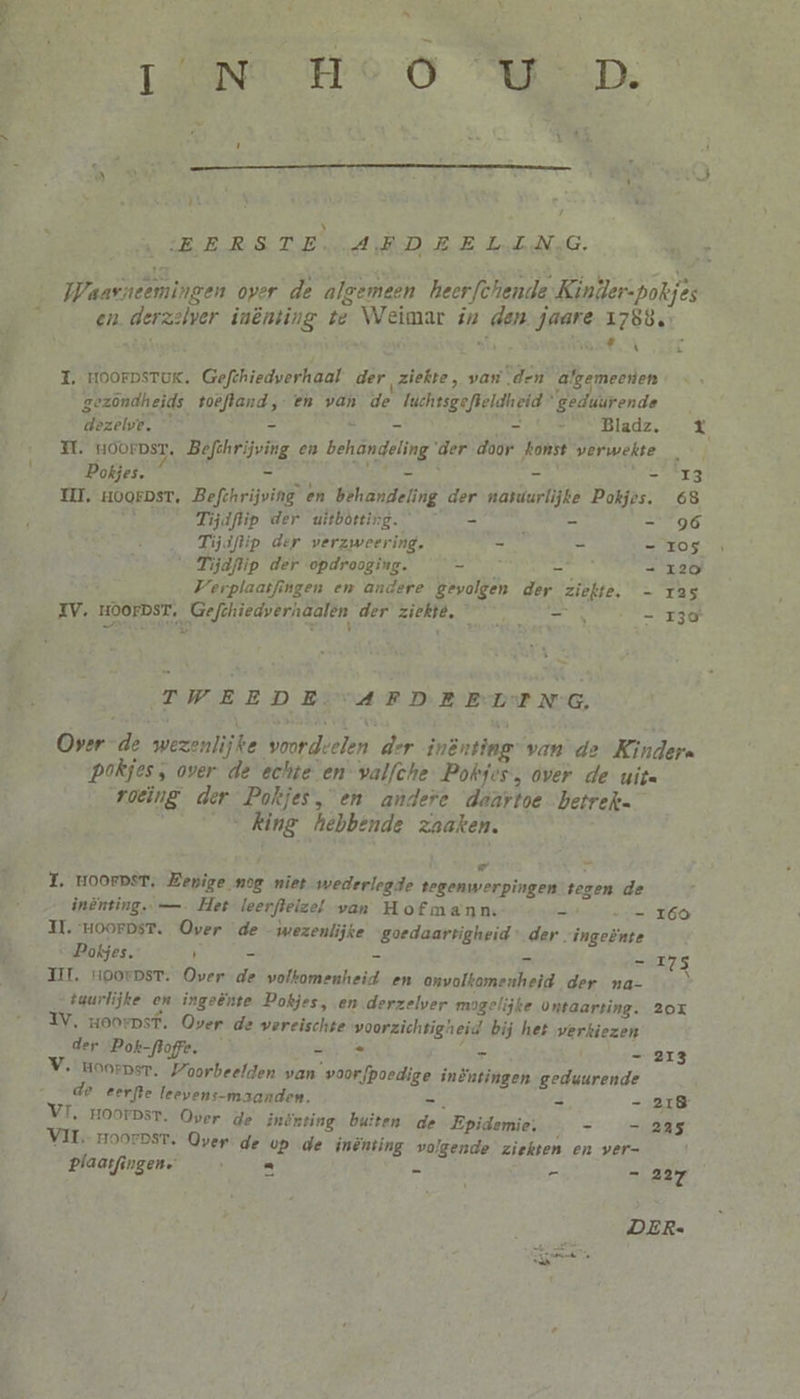 INHOUD.
EERSTE AFDEELING.
Waarneemingen over de algemeen heerſchende Kinder-pokjes
en derzelver inënting te Weimar in den jaare 1788.
I. HOOFDSTUK. Geſchiedverhaal der ziekte, van den algemeenen
gezondheids toeſtand, en van de luchtsgeſteldheid geduurende
dezelve. - - - - - Bladz. 1
II. HOOFDST. Beſchrijving en behandeling der door konst verwekte
Pokjes. - - - - 13
III. HOOFDST. Beſchrijving en behandeling der natuurlijke Pokjes. 68
Tijdſtip der uitbotting. - - - 96
Tijdſtip der verzweering. - - - 105
Tijdſtip der opdrooging. - - - 120
Verplaatſingen en andere gevolgen der ziekte. - 125
IV. HOOFDST. Geſchiedverhaalen der ziekte. - - 130
TWEEDE AFDEELING.
Over de wezenlijke voordeelen der inënting van de Kinder-
pokjes, over de echte en valſche Pokjes, over de uit-
roeing der Pokjes, en andere daartoe betrek-
king hebbende zaaken.
I. HOOFDST. Eenige nog niet wederlegde tegenwerpingen tegen de
inënting. — Het leerſtelzel van Hofmann. - - 160
II. HOOFDST. Over de wezenlijke goedaartigheid der ingeënte
Pokjes. - - - - 175
III. HOOFDST. Over de volkomenheid en onvolkomenheid der na-
tuurlijke en ingeënte Pokjes, en derzelver mogelijke ontaarting. 201
IV. HOOFDST. Over de vereischte voorzichtigheid bij het verkiezen
der Pok-ſtoffe. - - - - 213
V. HOOFDST. Voorbeelden van voorſpoedige inëntingen geduurende
de eerſte leevens-maanden. - - - 218
VI. HOOFDST. Over de inënting buiten de Epidemie. - - 225
VII. HOOFDST. Over de op de inënting volgende ziekten en ver-
plaatſingen. - - - - 227
DER-